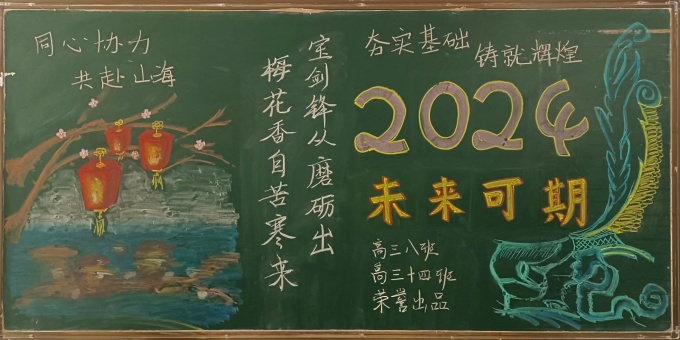 同心协力
共赴山海
宝剑锋从磨砺出
梅花香自苦寒来
夯实基础
铸就辉煌
2024
未来可期
高三八班
高三十四班
荣誉出品